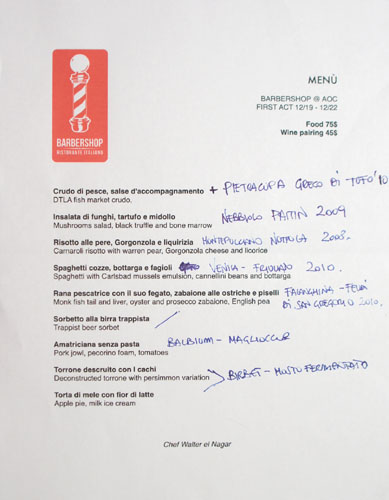 BARBERSHOP
RISTORANTE ITALIANO
MENÙ
BARBERSHOP @ AOC
FIRST ACT 12/19 - 12/22
Food 75$
Wine pairing 45$
Crudo di pesce, salse d'accompagnamento + PIETRACUPA GRECO DI TUFO '10
DTLA fish market crudo.
Insalata di funghi, tartufo e midollo NEBBIOLO 2009
Mushrooms salad, black truffle and bone marrow
Risotto alle pere, Gorgonzola e liquirizia MONTEPULCIANO 2008.
Carnaroli risotto with warren pear, Gorgonzola cheese and licorice
Spaghetti cozze, bottarga e fagioli VENICA - FRIULANO 2010.
Spaghetti with Carlsbad mussels emulsion, cannellini beans and bottarga
Rana pescatrice con il suo fegato, zabaione alle ostriche e piselli FALANGHINA - FEUDI
Monk fish tail and liver, oyster and prosecco zabaione, English pea DI SAN GREGORIO 2010.
Sorbetto alla birra trappista
Trappist beer sorbet
Amatriciana senza pasta BALBIUM - MAGLIOCCO
Pork jowl, pecorino foam, tomatoes
Torrone descruito con I cachi
Deconstructed torrone with persimmon variation BIRBET - MOSTO FERMENTATO
Torta di mele con fior di latte
Apple pie, milk ice cream
Chef Walter el Nagar